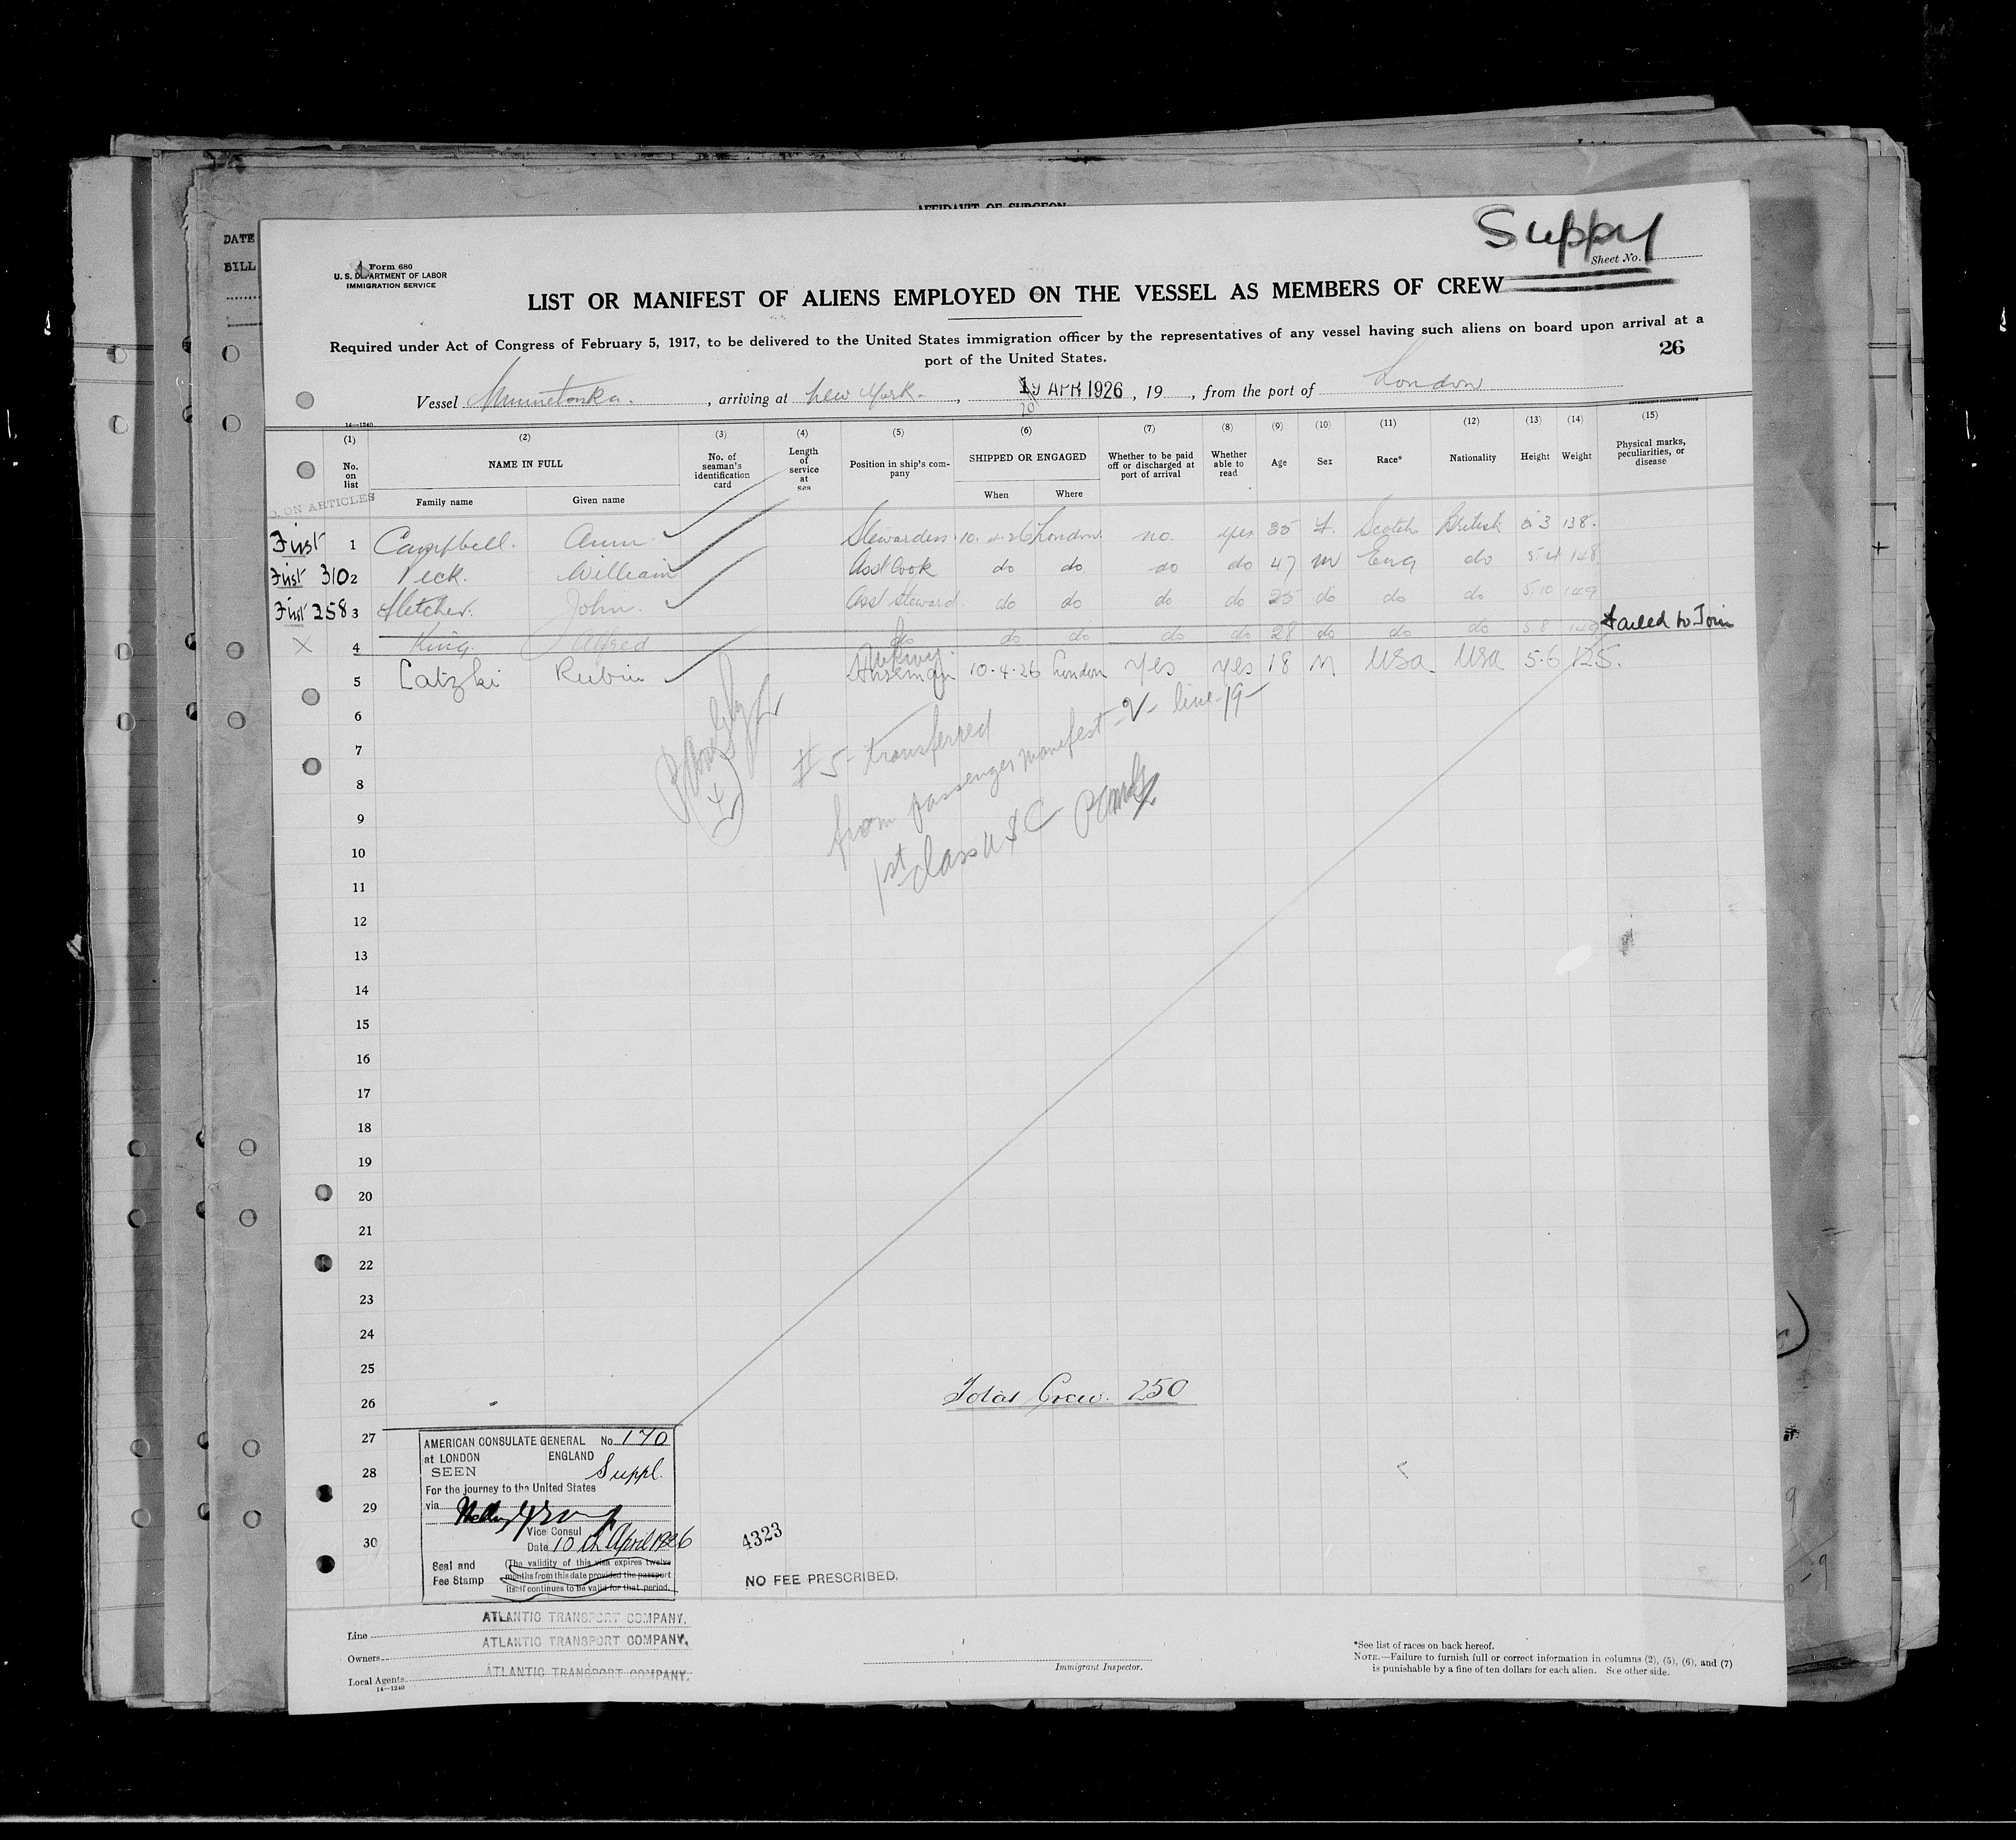 AFFIDAVIT OF SURGEON
DATE
BILL
Suppy
Sheet No.
Form 680
U. S. DEPARTMENT OF LABOR
IMMIGRATION SERVICE
LIST OR MANIFEST OF ALIENS EMPLOYED ON THE VESSEL AS MEMBERS OF CREW
Required under Act of Congress of February 5, 1917, to be delivered to the United States immigration officer by the representatives of any vessel having such aliens on board upon arrival at a
port of the United States.
26
Vessel Minnetonka. , arriving at New York. , 19 APR 1926 , 19 , from the port of London
14—1240
(1) (2) (3) (4) (5) (6) (7) (8) (9) (10) (11) (12) (13) (14) (15)
No. on list NAME IN FULL No. of seaman's identification card Length of service at sea Position in ship's company SHIPPED OR ENGAGED Whether to be paid off or discharged at port of arrival Whether able to read Age Sex Race* Nationality Height Weight Physical marks, peculiarities, or disease
Family name Given name When Where
ON ARTICLES
First 1 Campbell. Ann Stewardess 10.4.26 London no. yes 35 F. Scotch British 5 3 138.
First 310 2 Peck. William Asst Cook do do do do 47 M Eng do 5 4 148
First 258 3 Fletcher. John. Asst Steward. do do do do 25 do do do 5 10 149
X 4 King. Alfred do do do do do 28 do do do 5 8 Failed to Join
5 Latzki Rubin 10.4.26 London Yes Yes 18 M USA USA 5.6 125.
6
#5 transferred
7
from passenger manifest -V- line 19-
8
1st class USC
9
10
11
12
13
14
15
16
17
18
19
20
21
22
23
24
25
26 Total Crew. 250
27
28
29
30
AMERICAN CONSULATE GENERAL No. 170
at LONDON ENGLAND
SEEN Suppl.
For the journey to the United States
via
Vice Consul
Date 10th April 1926
Seal and Fee Stamp
(The validity of this visa expires twelve
months from this date provided the passport
itself continues to be valid for that period.
4323
NO FEE PRESCRIBED.
Line ATLANTIC TRANSPORT COMPANY.
Owners ATLANTIC TRANSPORT COMPANY.
Local Agents ATLANTIC TRANSPORT COMPANY.
14—1240
Immigrant Inspector.
*See list of races on back hereof.
NOTE.—Failure to furnish full or correct information in columns (2), (5), (6), and (7)
is punishable by a fine of ten dollars for each alien. See other side.